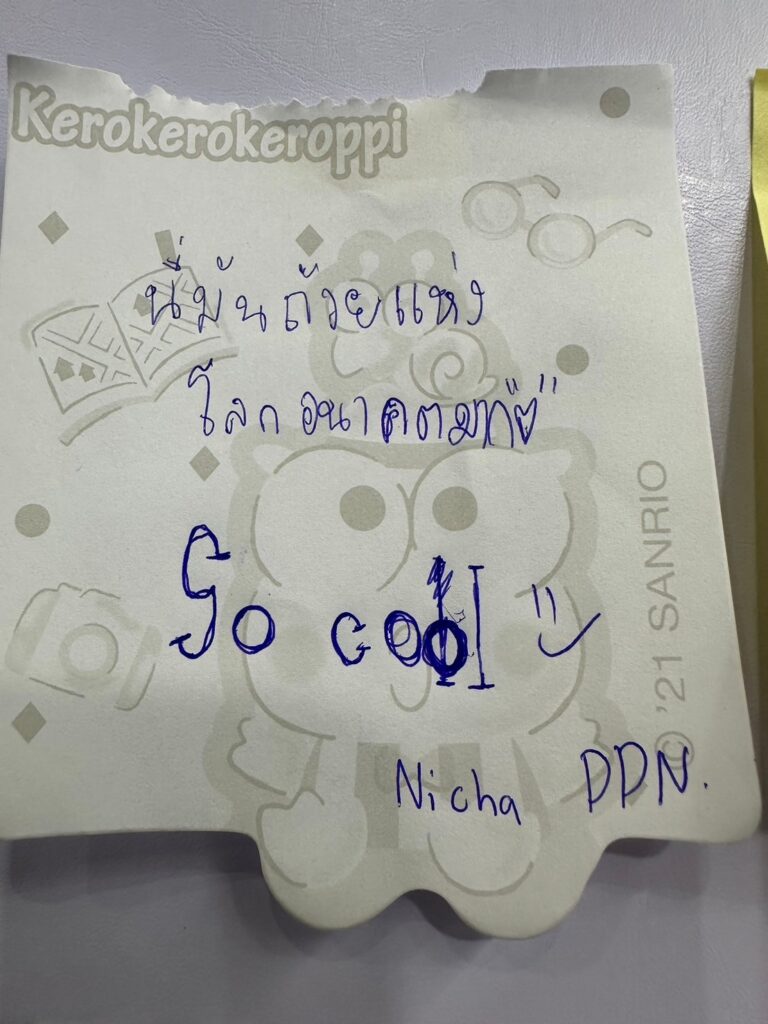 Kerokerokeroppi
นี่มันถ้วยแห่ง
โลกอนาคต
So cool
Nicha DDN.
© '21 SANRIO